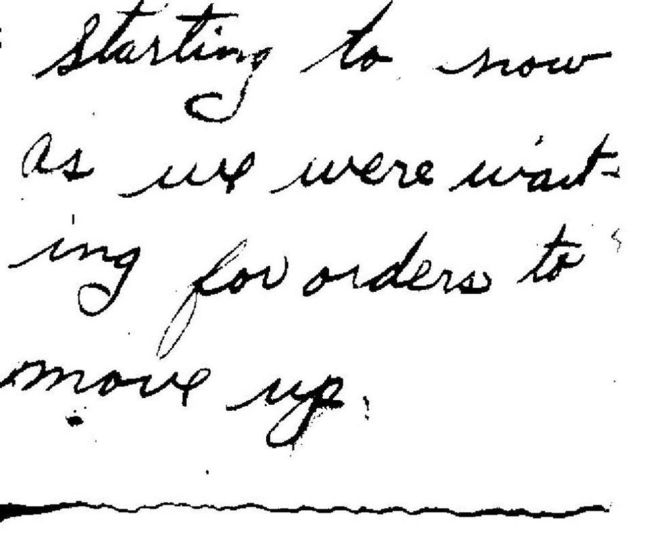 starting to snow
as we were wait-
ing for orders to
move up.